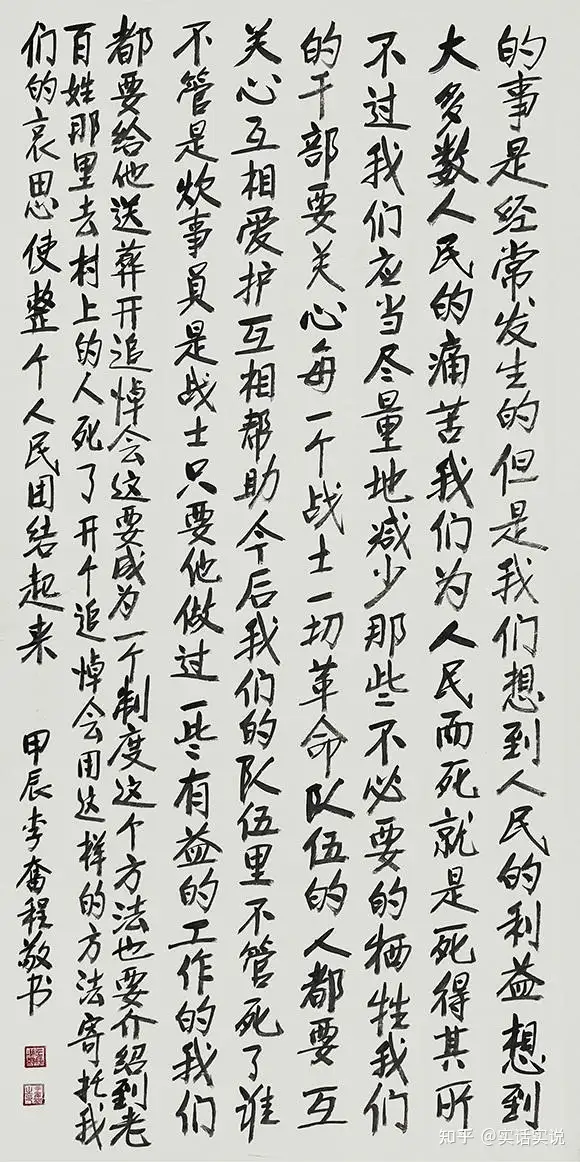 的事是经常发生的但是我们想到人民的利益想到
大多数人民的痛苦我们为人民而死就是死得其所
不过我们应当尽量地减少那些不必要的牺牲我们
的干部要关心每一个战士一切革命队伍的人都要互
关心互相爱护互相帮助今后我们的队伍里不管死了谁
不管是炊事员是战士只要他做过一些有益的工作的我们
都要给他送葬开追悼会这要成为一个制度这个方法也要介绍到老
百姓那里去村上的人死了开个追悼会用这样的方法寄托我
们的哀思使整个人民团结起来 甲辰李奋程敬书
知乎 @实话实说